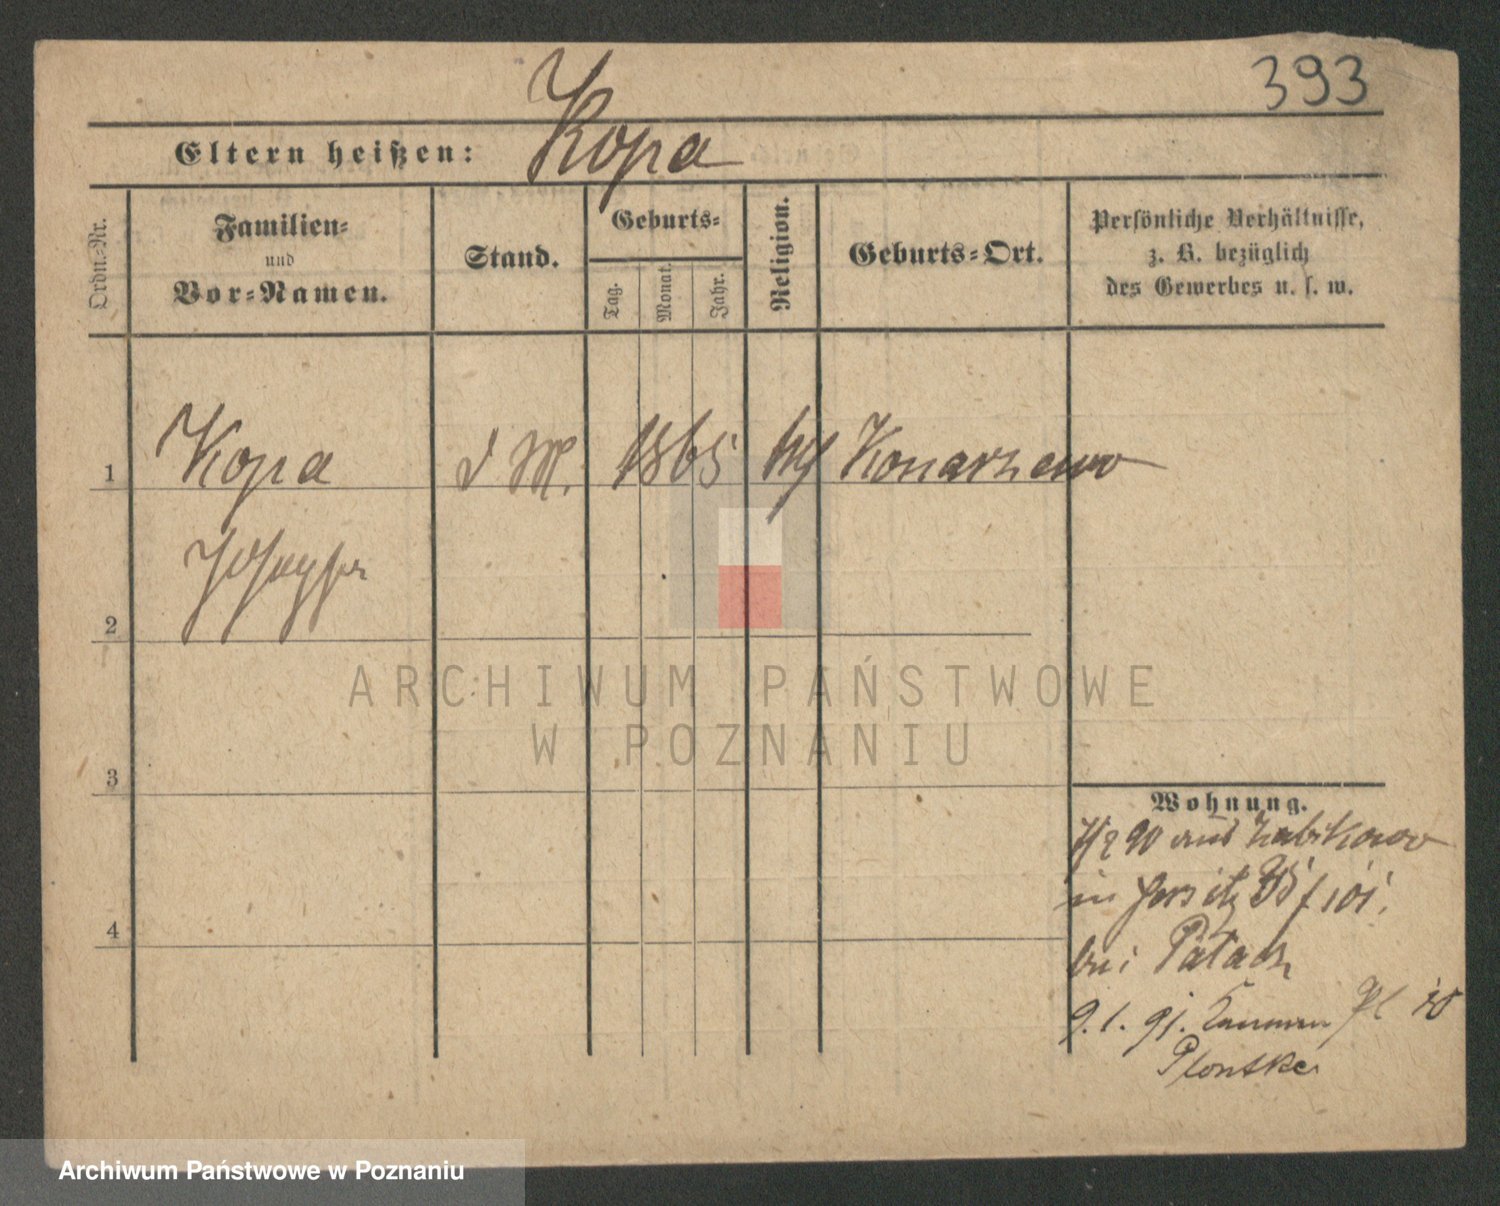 393
Eltern heißen: Kopa
Ordn.-Nr.
Familien-
und
Vor-Namen.
Stand.
Geburts-
Tag.
Monat.
Jahr.
Religion.
Geburts-Ort.
Persönliche Verhältnisse,
z. B. bezüglich
des Gewerbes u. s. w.
1 Kopa d M. 1865 kth Konarzewo
Josepha
2
3
4
ARCHIWUM PAŃSTWOWE
W POZNANIU
Wohnung.
90 aus Zabikowo
in Jersitz 101.
bei Patack
9. 1. 91. Pl 10
Plonske
Archiwum Państwowe w Poznaniu